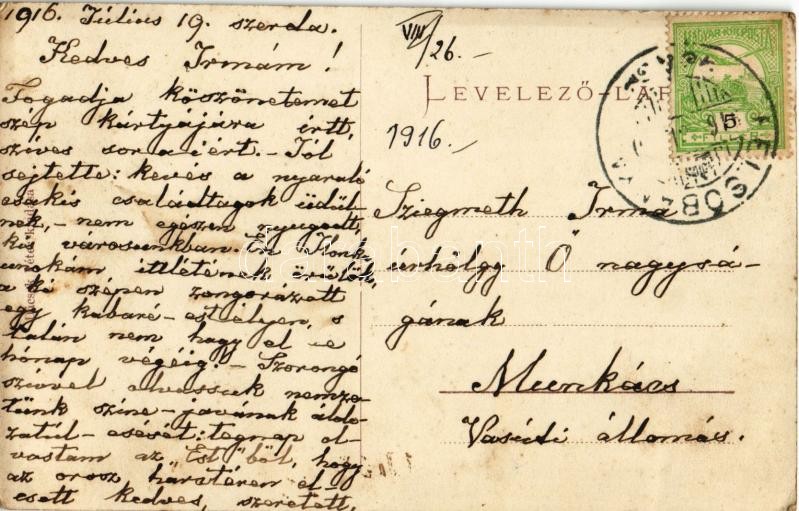 1916. Július 19. szerda.
Kedves Irmám!
Fogadja köszönetemet
szép kártyájára írtt,
szíves soraiért. - Jól
sejtette: kevés a nyaraló
csakis családtagok üdül-
nek, - nem egészen nyugodt,
kis városunkban. Ilonk
unokám ittlétének örülök,
a ki szépen zongorázott
egy kabaré-estélyen, s
talán nem hagy el e
hónap végéig. - Szorongó
szívvel olvassuk nemze-
tünk színe-javának áldo-
zatúl-esését: tegnap ol-
vastam az "Est"ből, hogy
az orosz harctéren el-
esett kedves, szeretett,
VIII/26.-
1916.-
LEVELEZŐ-LAP
MAGYAR KIR. POSTA
Sziegmeth Irma
úrhölgy Ő nagysá-
gának
Munkács
Vasúti állomás.
darabanth